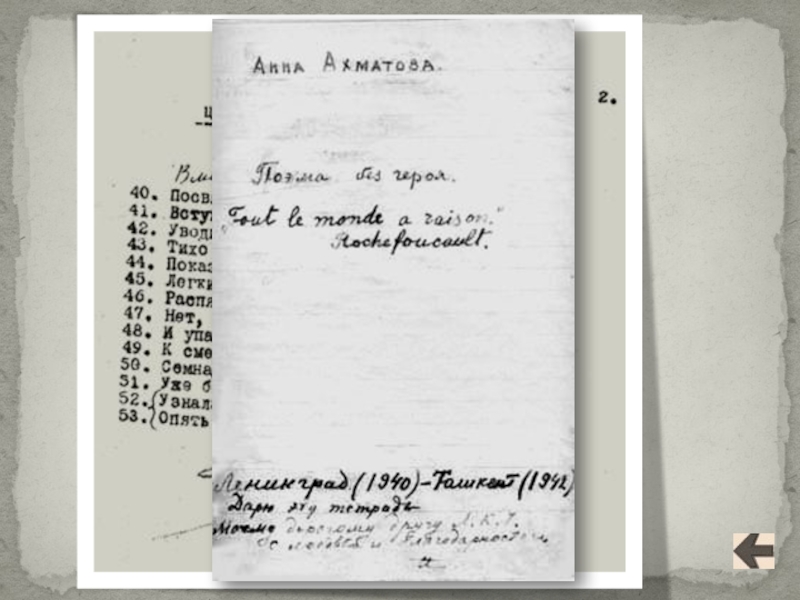 г.
Ц
40. Посв
41. Всту
42. Увод
43. Тихо
44. Показ
45. Легки
46. Распя
47. Нет,
48. И упа
49. К сме
50. Семна
51. Уже б
52. Узнал
53. Опять
Анна Ахматова.
Поэма без героя.
"Tout le monde a raison."
Rochefoucault.
Ленинград (1940) – Ташкент (1942)
Дарю эту тетрадь
Моему дорогому другу
с любовью и благодарностью